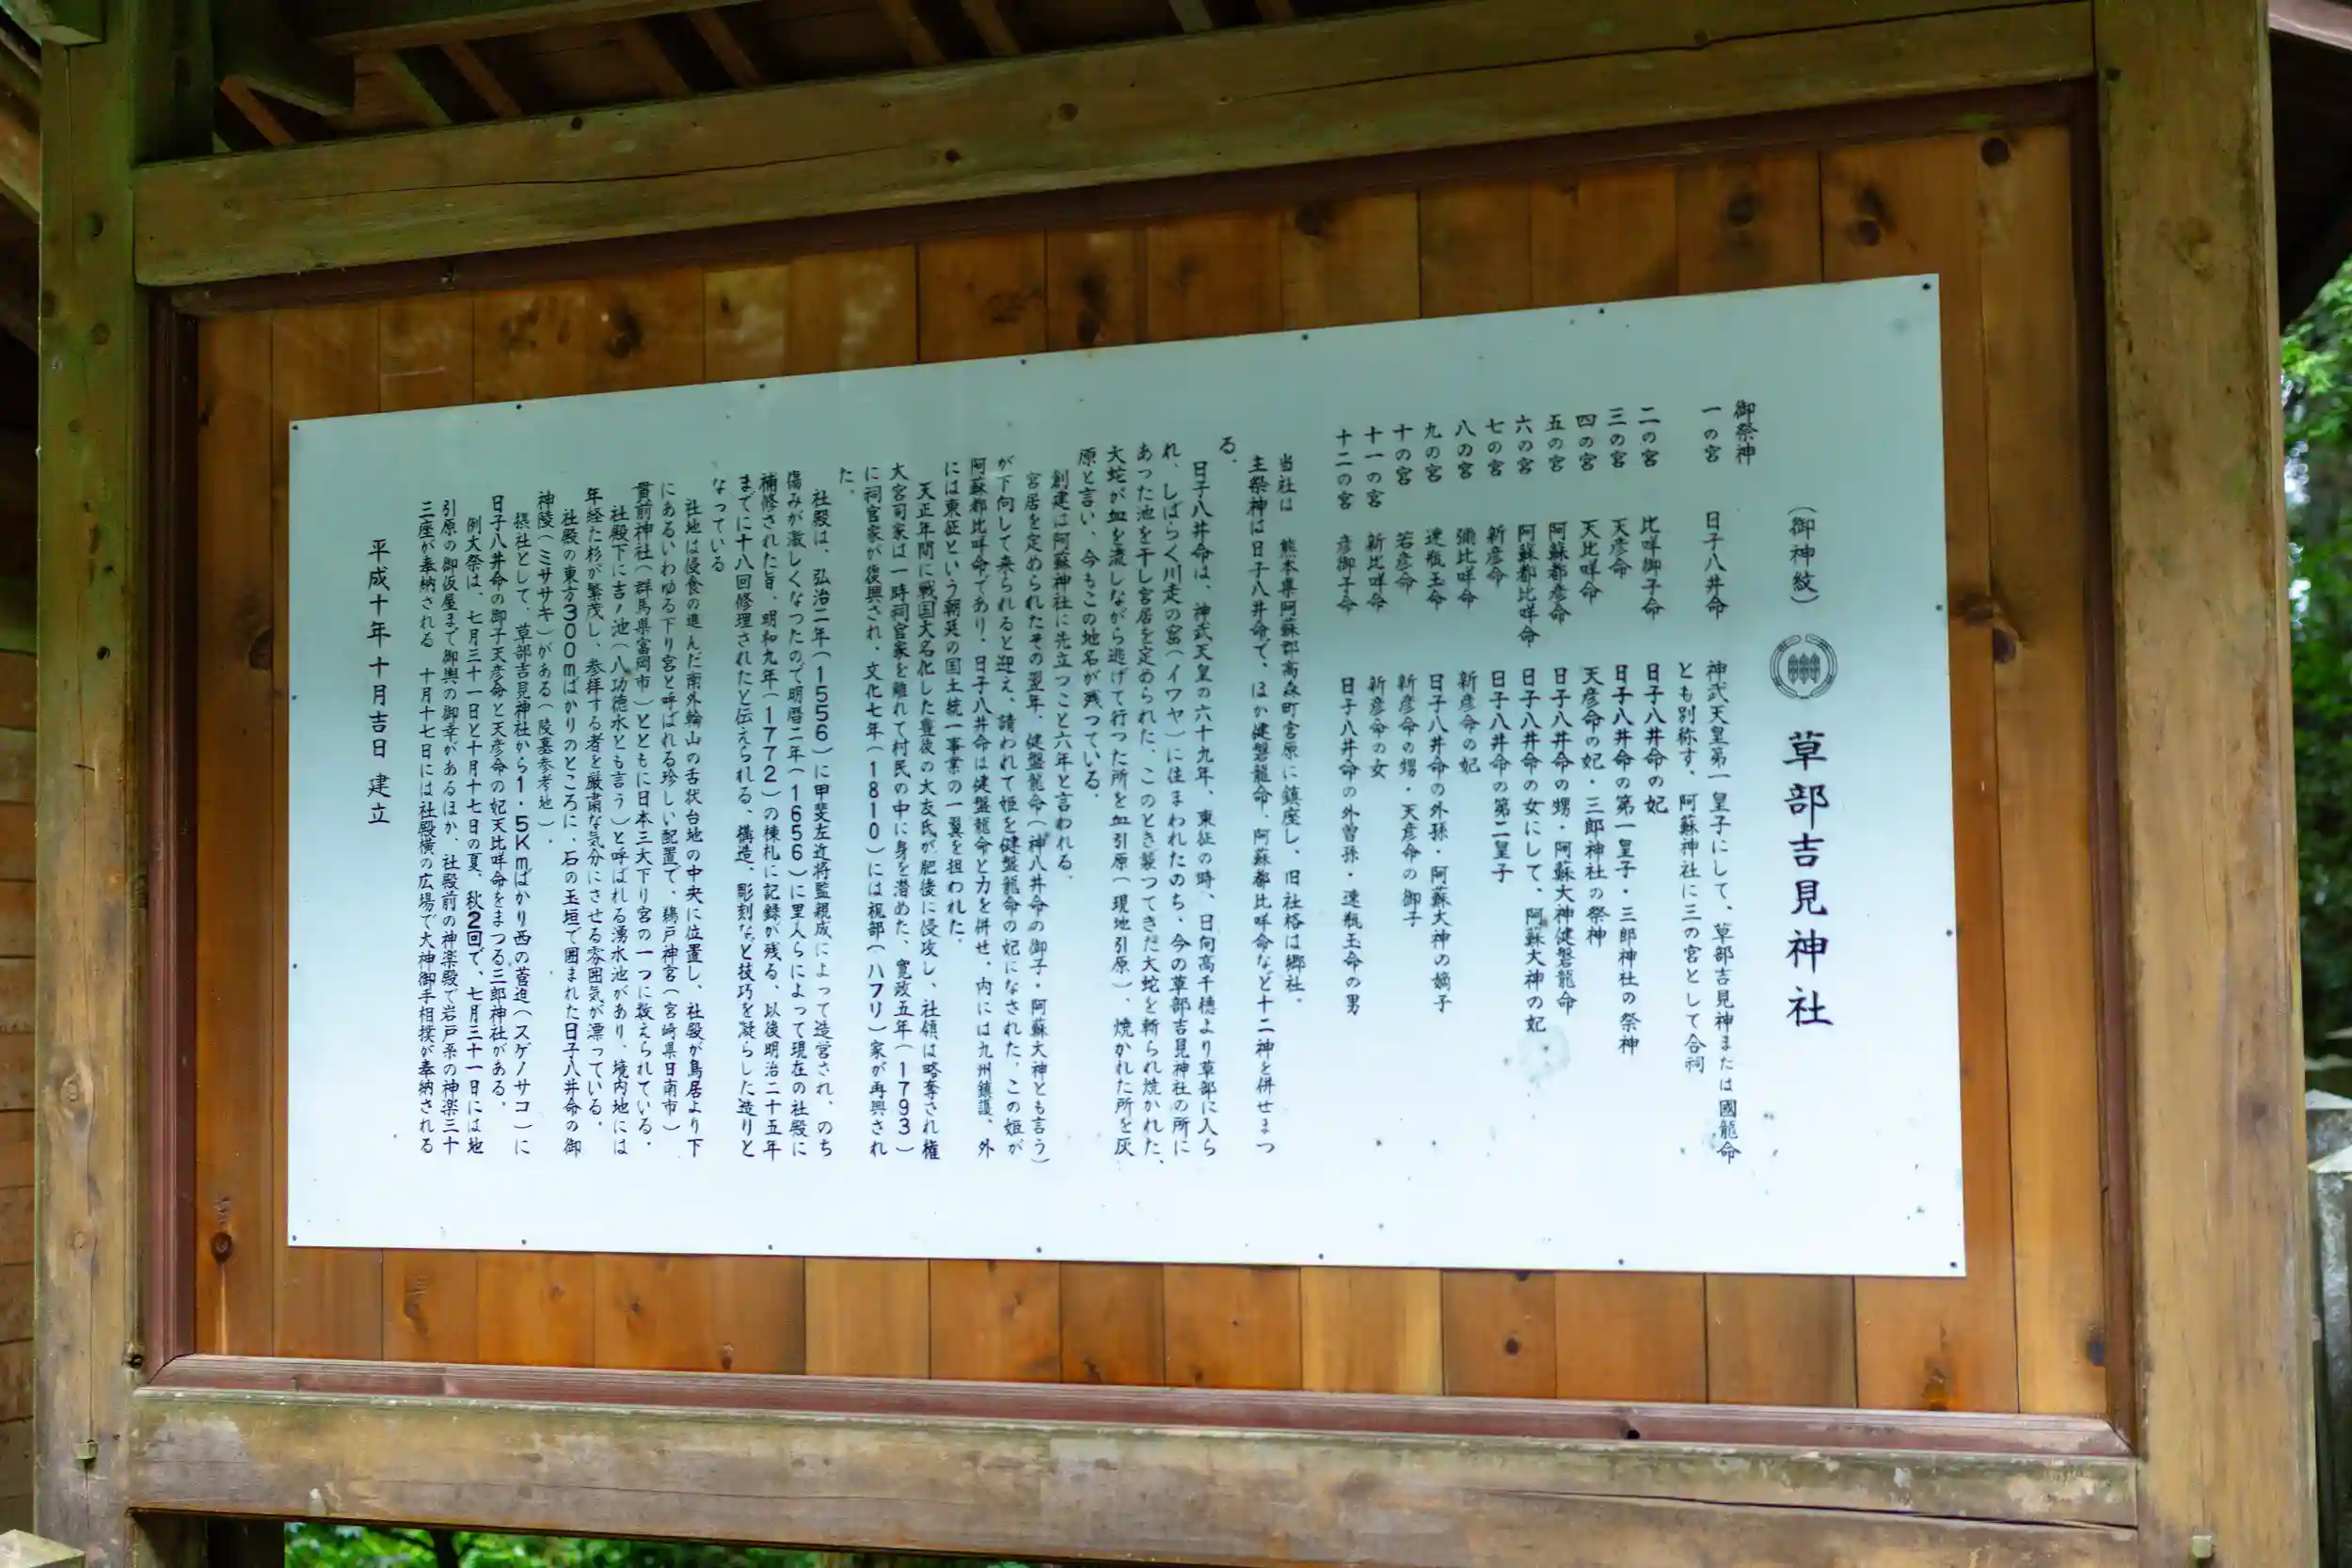 (御神紋) 草部吉見神社
御祭神
一の宮 日子八井命 神武天皇第一皇子にして、草部吉見神または國龍命
とも別称す、阿蘇神社に三の宮として合祠
二の宮 比咩御子命 日子八井命の妃
三の宮 天彦命 日子八井命の第一皇子・三郎神社の祭神
四の宮 天比咩命 天彦命の妃・三郎神社の祭神
五の宮 阿蘇都彦命 日子八井命の甥・阿蘇大神健磐龍命
六の宮 阿蘇都比咩命 日子八井命の女にして、阿蘇大神の妃
七の宮 新彦命 日子八井命の第二皇子
八の宮 彌比咩命 新彦命の妃
九の宮 速瓶玉命 日子八井命の外孫・阿蘇大神の嫡子
十の宮 若彦命 新彦命の甥・天彦命の御子
十一の宮 新比咩命 新彦命の女
十二の宮 彦御子命 日子八井命の外曽孫・速瓶玉命の男
当社は 熊本県阿蘇郡高森町宮原に鎮座し、旧社格は郷社。
主祭神は日子八井命で、ほか健磐龍命、阿蘇都比咩命など十二神を併せまつ
る。
日子八井命は、神武天皇の六十九年、東征の時、日向高千穂より草部に入ら
れ、しばらく川走の窟(イワヤ)に住まわれたのち、今の草部吉見神社の所に
あった池を干し宮居を定められた、このとき襲つてきた大蛇を斬られ焼かれた、
大蛇が血を流しながら逃げて行った所を血引原(現地引原)、焼かれた所を灰
原と言い、今もこの地名が残つている。
創建は阿蘇神社に先立つこと六年と言われる。
宮居を定められたその翌年、健盤龍命(神八井命の御子・阿蘇大神とも言う)
が下向して来られると迎え、請われて姫を健盤龍命の妃になされた、この姫が
阿蘇都比咩命であり、日子八井命は健盤龍命と力を併せ、内には九州鎮護、外
には東征という朝廷の国土統一事業の一翼を担われた。
天正年間に戦国大名化した豊後の大友氏が肥後に侵攻し、社領は略奪され権
大宮司家は一時祠官家を離れて村民の中に身を潜めた、寛政五年(1793)
に祠官家が復興され、文化七年(1810)には祝部(ハフリ)家が再興され
た。
社殿は、弘治二年(1556)に甲斐左近将監親成によって造営され、のち
傷みが激しくなつたので明暦二年(1656)に里人らによって現在の社殿に
補修された旨、明和九年(1772)の棟札に記録が残る、以後明治二十五年
までに十八回修理されたと伝えられる、構造、彫刻など技巧を凝らした造りと
なっている
社地は侵食の進んだ南外輪山の舌状台地の中央に位置し、社殿が鳥居より下
にあるいわゆる下り宮と呼ばれる珍しい配置で、鵜戸神宮(宮崎県日南市)
貫前神社(群馬県富岡市)とともに日本三大下り宮の一つに数えられている。
社殿下に吉ノ池(八功徳水とも言う)と呼ばれる湧水池があり、境内地には
年経た杉が繁茂し、参拝する者を厳粛な気分にさせる雰囲気が漂っている。
社殿の東方300mばかりのところに、石の玉垣で囲まれた日子八井命の御
神陵(ミササキ)がある(陵墓参考地)。
摂社として、草部吉見神社から1・5Kmばかり西の菅迫(スゲノサコ)に
日子八井命の御子天彦命と天彦命の妃天比咩命をまつる三郎神社がある。
例大祭は、七月三十一日と十月十七日の夏、秋2回で、七月三十一日には地
引原の御仮屋まで御輿の御幸があるほか、社殿前の神楽殿で岩戸系の神楽三十
三座が奉納される 十月十七日には社殿横の広場で大神御手相撲が奉納される
平成十年十月吉日 建立